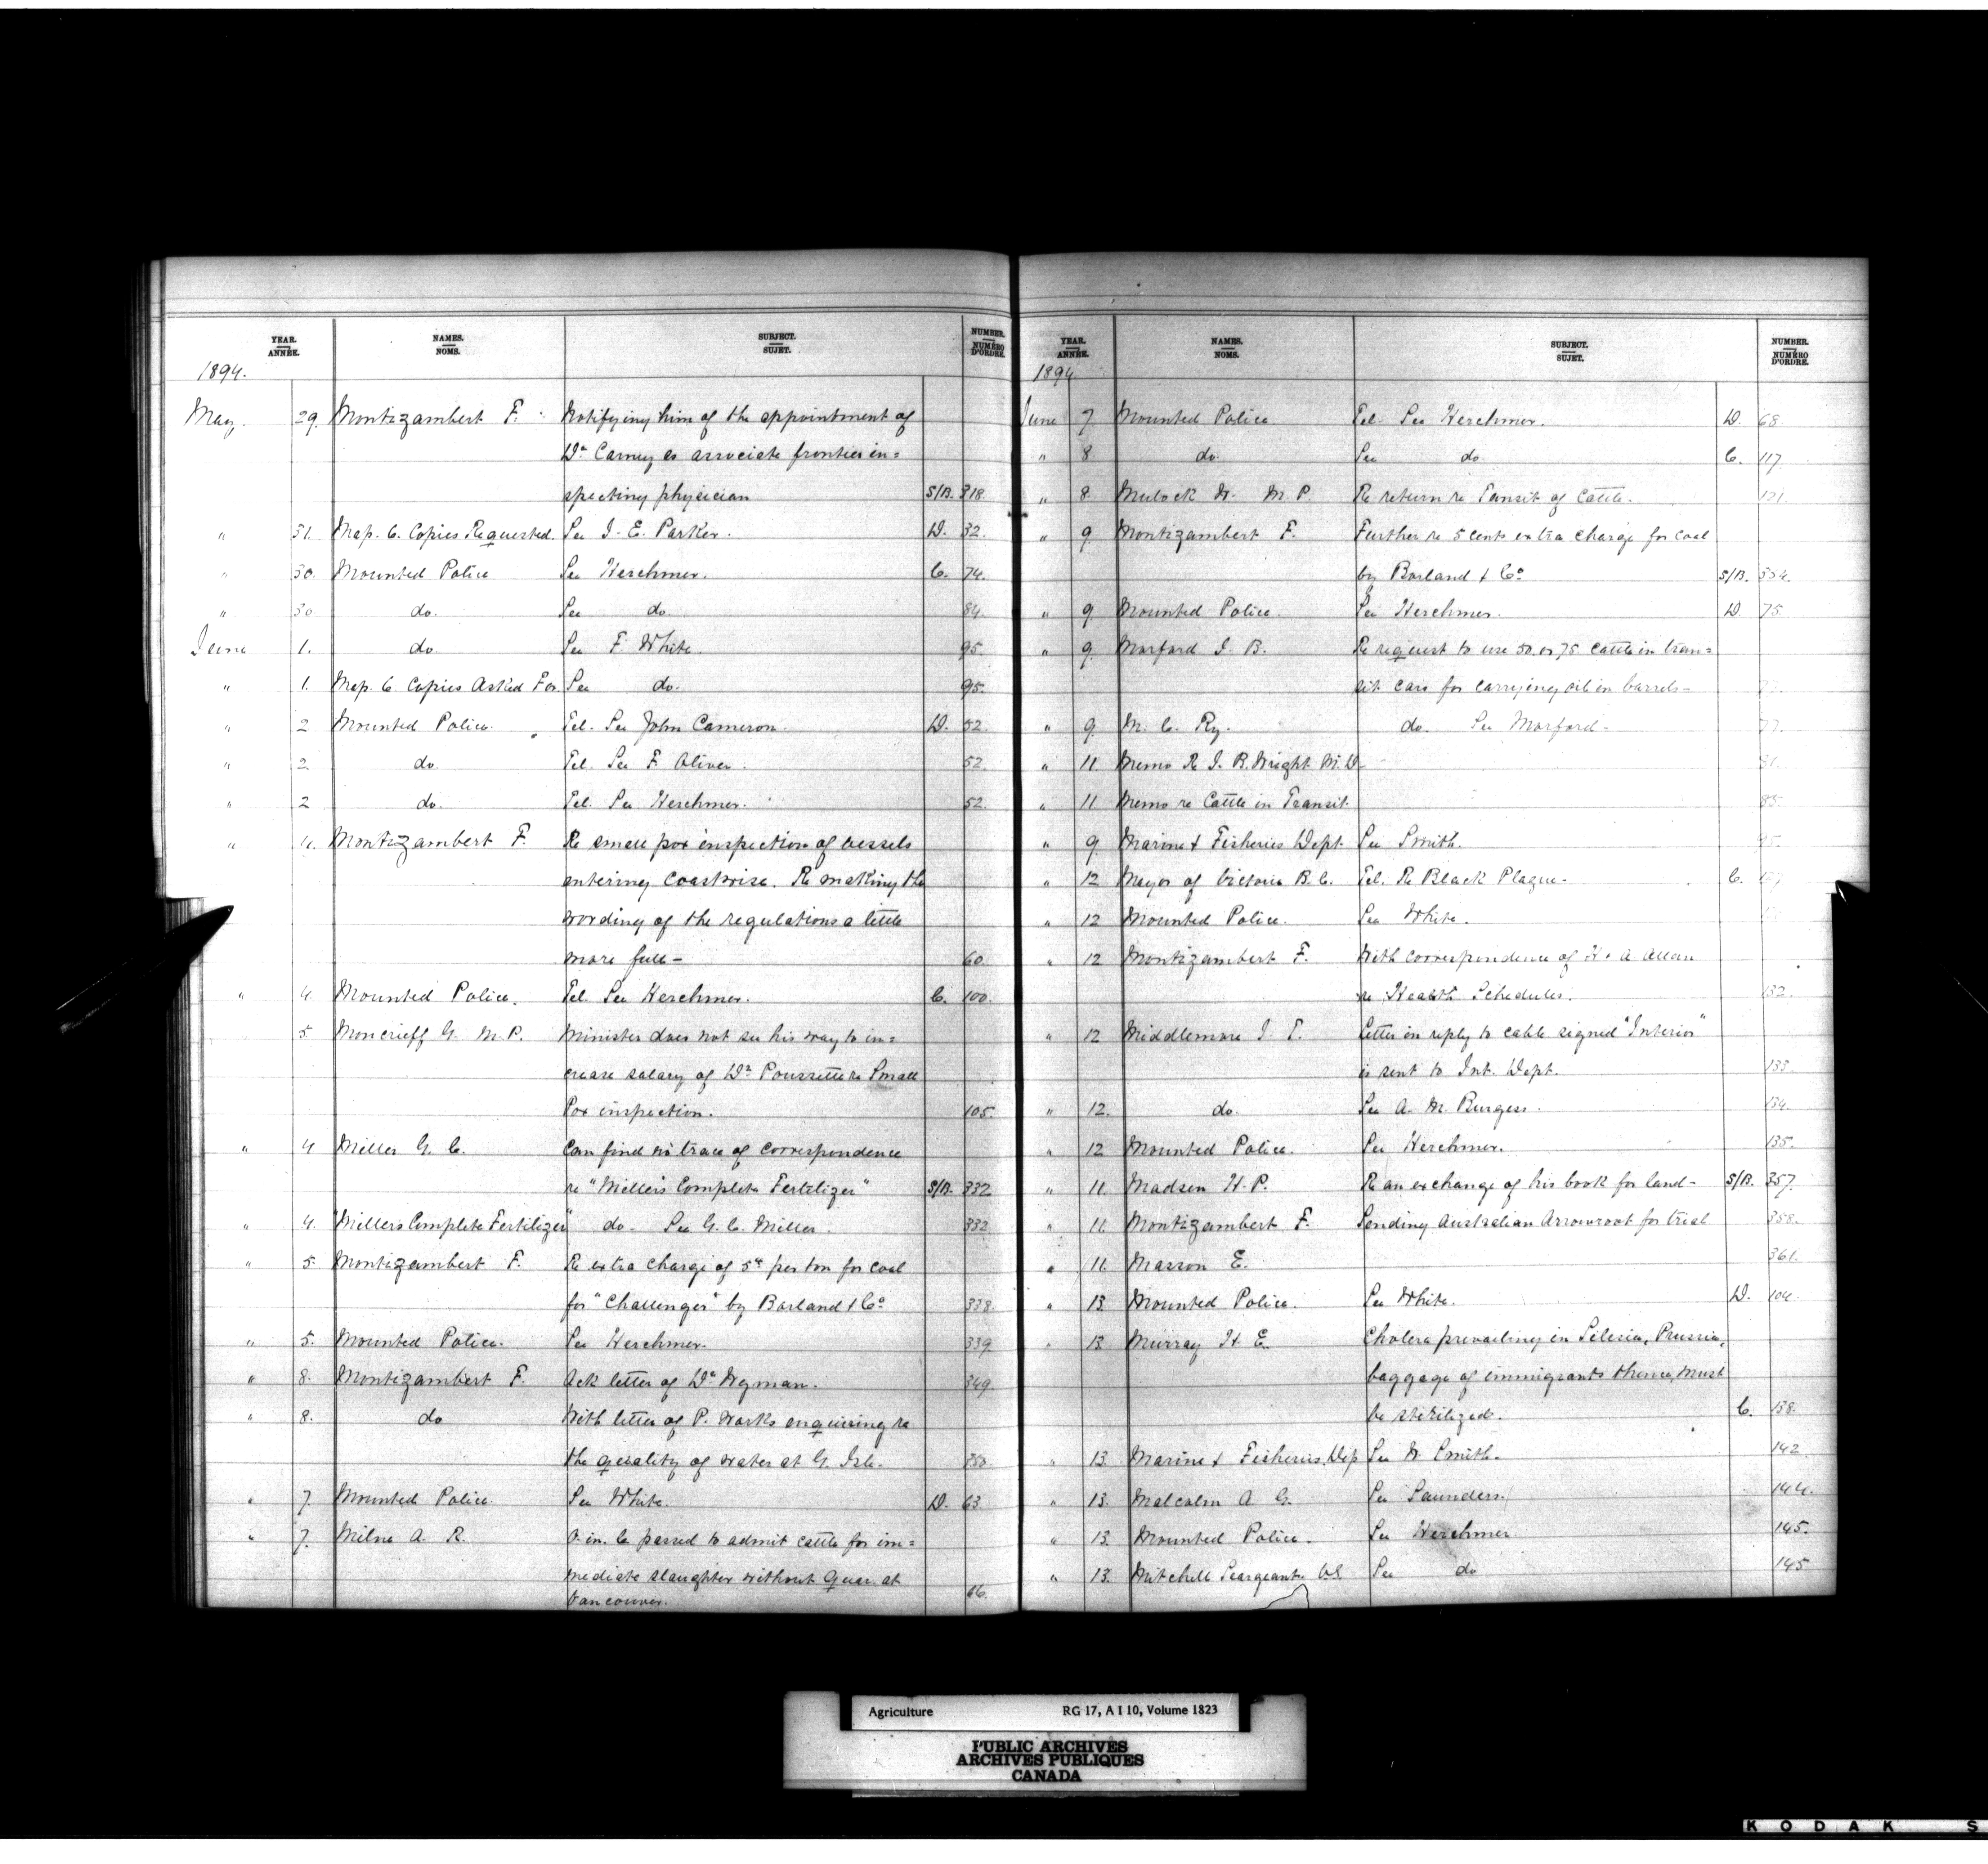 YEAR. ANNÉE. NAMES. NOMS. SUBJECT. SUJET. NUMBER. NUMÉRO D'ORDRE.
1894.
May. 29. Montizambert F. Notifying him of the appointment of
Dr. Carney as associate frontier in=
specting physician S/B. 318.
" 31. Map. C. Copies Requested. See J. E. Parker. D. 32.
" 30. Mounted Police See Herchmer. C. 74.
" 30. do. See do. 84.
June 1. do. See F. White. 95.
" 1. Map. C. Copies Asked For. See do. 95.
" 2 Mounted Police. Tel. See John Cameron. D. 52.
" 2. do Tel. See F. Oliver. 52.
" 2 do. Tel. See Herchmer. 52.
" 4. Montizambert F. Re small pox inspection of vessels
entering coastwise. Re making the
wording of the regulations a little
more full- 60.
" 4. Mounted Police. Tel. See Herchmer. C. 100.
5. Moncrieff G. M.P. Minister does not see his way to in=
crease salary of Dr. Poussette re Small
Pox inspection. 105.
" 4 Miller G. C. Can find no trace of correspondence
re "Miller's Complete Fertilizer" S/B. 332
" 4. "Millers Complete Fertilizer" do- See G. C. Miller. 332
" 5. Montizambert F. Re extra charge of 5cts per ton for coal
for "Challenger" by Barland & Co. 338.
" 5. Mounted Police. See Herchmer. 339
" 8. Montizambert F. Ack letter of Dr. Wyman. 349.
" 8. do With letter of P. Works enquiring re
the quality of water at G. Isle. 350.
" 7. Mounted Police. See White. D. 63.
" 7. Milne A. R. O. in. C. passed to admit cattle for im=
mediate slaughter without Quar. at
Vancouver. 66.
YEAR. ANNÉE. NAMES. NOMS. SUBJECT. SUJET. NUMBER. NUMÉRO D'ORDRE.
1894
June 7. Mounted Police Tel. See Herchmer. D. 68.
" 8 do. See do C. 117.
" 8. Mulock W. M.P. Re return re Transit of Cattle. 121
" 9. Montizambert F. Further re 5 cents extra charge for coal
by Barland & Co. S/B. 354.
" 9. Mounted Police. See Herchmer. D 75.
" 9. Morford J. B. Re request to use 50 or 75 cattle in tran=
sit cars for carrying oil in barrels-
" 9. M. C. Ry. do. See Morford- 77.
" 11. Memo Re J. R. Wright M.D-
" 11. Memo re Cattle in Transit. 85.
" 9. Marine & Fisheries Dept. See Smith. 95.
" 12 Mayor of Victoria B.C. Tel. Re Black Plague- C.
" 12 Mounted Police. See White.
" 12 Montizambert F. With correspondence of H & A Allan
re Health Schedules. 132.
" 12 Middlemore J. T. Letter in reply to cable signed "Interior"
is sent to Int. Dept. 133.
" 12. do. See A. M. Burgess. 134.
" 12 Mounted Police. See Herchmer. 135.
" 11. Madsen H. P. Re an exchange of his book for land- S/B. 357.
" 11. Montizambert F. Sending Australian Arrowroot for trial 358.
" 11. Masson E. 361.
" 13. Mounted Police. See White. D. 104.
" 13. Murray H. E. Cholera prevailing in Silesia, Prussia,
baggage of immigrants thence, must
be sterilized. C. 138.
" 13. Marine & Fisheries, Dep See W. Smith. 142
" 13. Malcolm A. G. See Saunders. 144.
" 13. Mounted Police. See Herchmer. 145.
" 13. Mitchell Seargeant. See do 145
Agriculture RG 17, A I 10, Volume 1823
PUBLIC ARCHIVES
ARCHIVES PUBLIQUES
CANADA
KODAK S